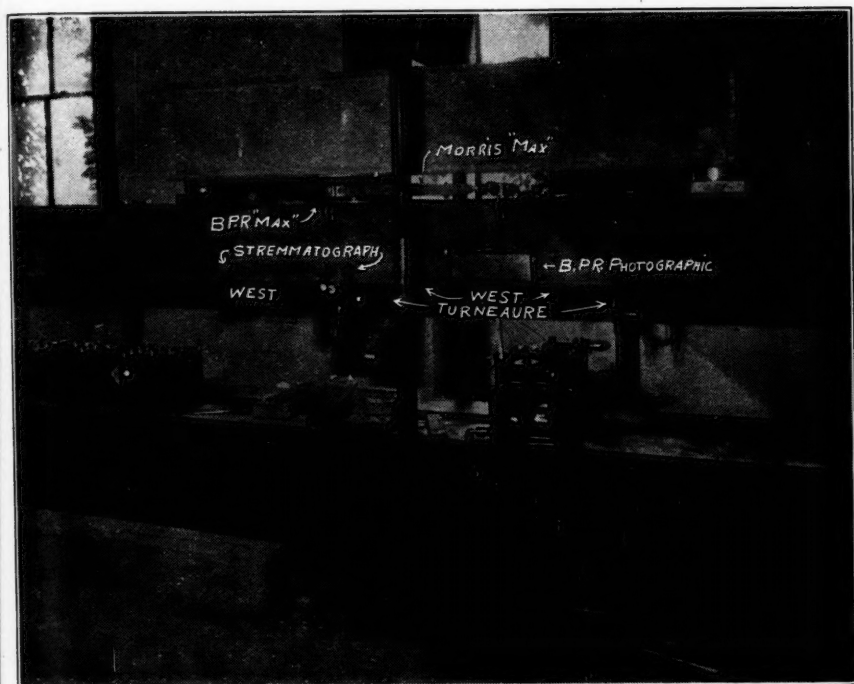 MORRIS "MAX"
B.P.R. "MAX"
STREMMATOGRAPH
← B.P.R. PHOTOGRAPHIC
WEST
WEST
TURNEAURE